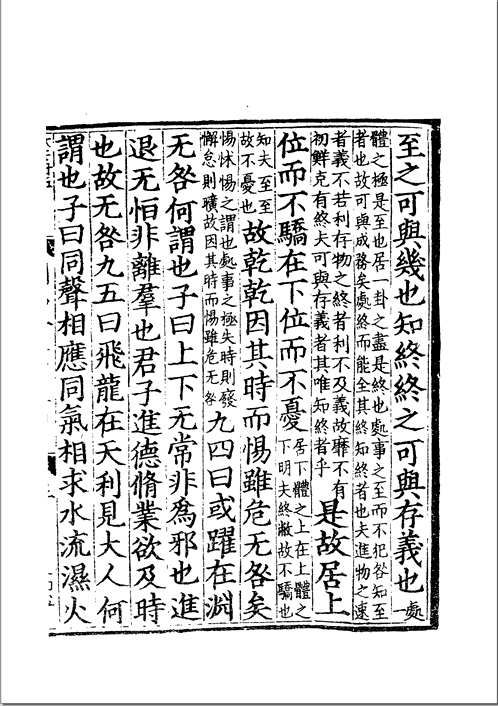 至之可與幾也知終終之可與存義也處一
體之極是至也居一卦之盡是終也處事之至而不犯咎知至
者也故可與成務矣處終而能全其終知終者也夫進物之速
者義不若利存物之終者利不及義故靡不有
初鮮克有終夫可與存義者其唯知終者乎
是故居上
位而不驕在下位而不憂
居下體之上在上體之
下明夫終敝故不驕也
知夫至至
故不憂也
故乾乾因其時而惕雖危无咎矣
惕怵惕之謂也處事之極失時則發
懈怠則曠故因其時而惕雖危无咎
九四曰或躍在淵
无咎何謂也子曰上下无常非爲邪也進
退无恒非離羣也君子進德脩業欲及時
也故无咎九五曰飛龍在天利見大人何
謂也子曰同聲相應同氣相求水流濕火